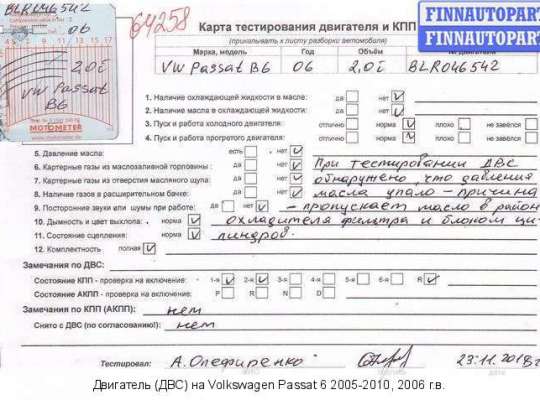 BLR046542
06
11 13 15 17
2,0i
VW Passat
B6
MOTOMETER
www.motometer.de
64258
FINNAUTOPART
FINNAUTOPART
Карта тестирования двигателя и КПП
(прикалывать к листу разборки автомобиля)
Марка, модель Год Объём
VW Passat B6 06 2,0i BLR046542
1. Наличие охлаждающей жидкости в масле: да нет
2. Наличие масла в охлаждающей жидкости: да нет
3. Пуск и работа холодного двигателя: отлично норма плохо не завёлся
4. Пуск и работа прогретого двигателя: отлично норма плохо не завёлся
5. Давление масла: есть нет
6. Картерные газы из маслозаливной горловины: да нет При тестировании ДВС
7. Картерные газы из отверстия масляного щупа: да нет обнаружено, что давления
8. Наличие газов в расширительном бачке: да нет масла упало - причина
9. Посторонние звуки или шумы при работе: да нет - пропускает масло в район
10. Дымность и цвет выхлопа: норма охладителя фильтра и блоком ци-
11. Состояние сцепления: норма линдров.
12. Комплектность полная
Замечания по ДВС:
Состояние КПП - проверка на включение: 1-я 2-я 3-я 4-я 5-я 6-я R
Состояние АКПП - проверка на включение: P R N D
Замечания по КПП (АКПП): нет
Снято с ДВС (по согласованию!): нет
Тестировал: А.Олефиренко 23.11.2018г
Двигатель (ДВС) на Volkswagen Passat 6 2005-2010, 2006 г.в.